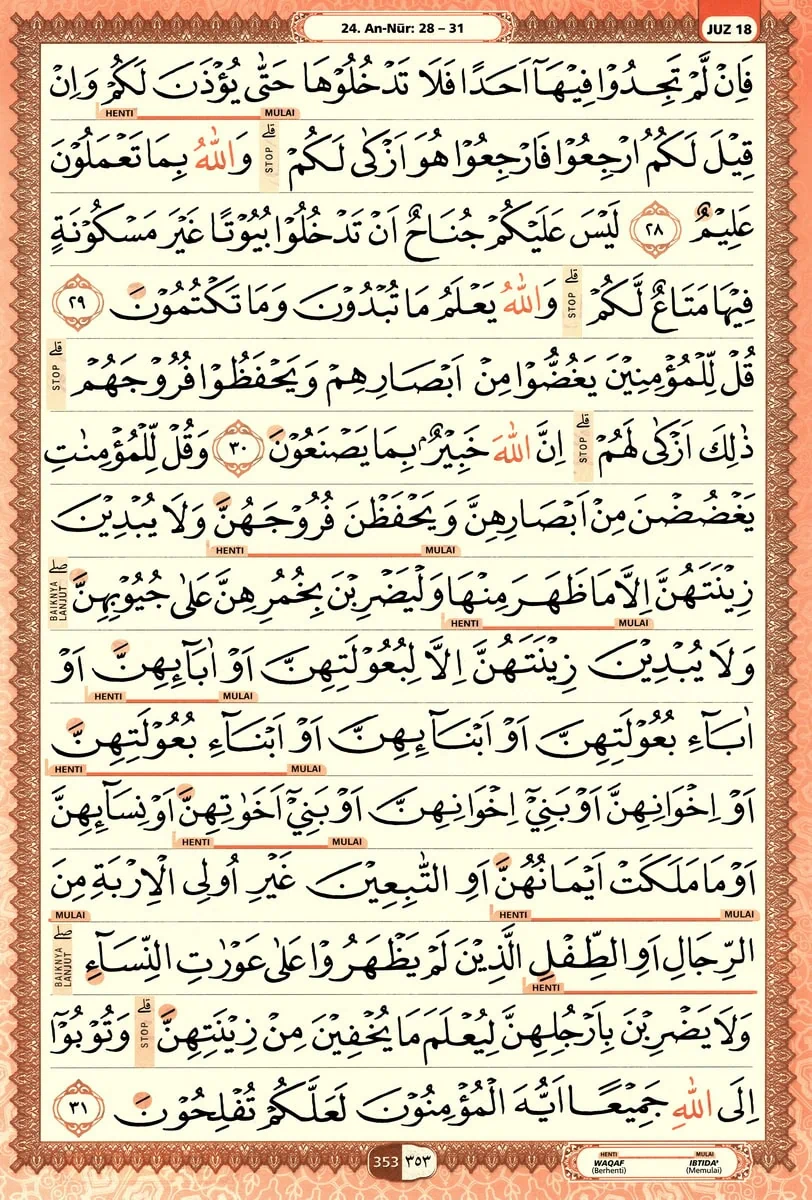 24. An-Nūr: 28 – 31
JUZ 18
فَاِنْ لَّمْ تَجِدُوْا فِيْهَآ اَحَدًا فَلَا تَدْخُلُوْهَا حَتّٰى يُؤْذَنَ لَكُمْ وَاِنْ
HENTI MULAI
قِيْلَ لَكُمُ ارْجِعُوْا فَارْجِعُوْا هُوَ اَزْكٰى لَكُمْ ۗ وَاللّٰهُ بِمَا تَعْمَلُوْنَ
STOP
عَلِيْمٌ ٢٨ لَيْسَ عَلَيْكُمْ جُنَاحٌ اَنْ تَدْخُلُوْا بُيُوْتًا غَيْرَ مَسْكُوْنَةٍ
فِيْهَا مَتَاعٌ لَّكُمْ ۗ وَاللّٰهُ يَعْلَمُ مَا تُبْدُوْنَ وَمَا تَكْتُمُوْنَ ٢٩
STOP
قُلْ لِّلْمُؤْمِنِيْنَ يَغُضُّوْا مِنْ اَبْصَارِهِمْ وَيَحْفَظُوْا فُرُوْجَهُمْ ۗ
STOP
ذٰلِكَ اَزْكٰى لَهُمْ ۗ اِنَّ اللّٰهَ خَبِيْرٌۢ بِمَا يَصْنَعُوْنَ ٣٠ وَقُلْ لِّلْمُؤْمِنٰتِ
STOP
يَغْضُضْنَ مِنْ اَبْصَارِهِنَّ وَيَحْفَظْنَ فُرُوْجَهُنَّ وَلَا يُبْدِيْنَ
HENTI MULAI
زِيْنَتَهُنَّ اِلَّا مَا ظَهَرَ مِنْهَا وَلْيَضْرِبْنَ بِخُمُرِهِنَّ عَلٰى جُيُوْبِهِنَّ ۖ
BAIKNYA LANJUT
HENTI MULAI
وَلَا يُبْدِيْنَ زِيْنَتَهُنَّ اِلَّا لِبُعُوْلَتِهِنَّ اَوْ اٰبَاۤىِٕهِنَّ اَوْ
HENTI MULAI
اٰبَاۤءِ بُعُوْلَتِهِنَّ اَوْ اَبْنَاۤىِٕهِنَّ اَوْ اَبْنَاۤءِ بُعُوْلَتِهِنَّ
HENTI MULAI
اَوْ اِخْوَانِهِنَّ اَوْ بَنِيْٓ اِخْوَانِهِنَّ اَوْ بَنِيْٓ اَخَوٰتِهِنَّ اَوْ نِسَاۤىِٕهِنَّ
HENTI MULAI
اَوْ مَا مَلَكَتْ اَيْمَانُهُنَّ اَوِ التّٰبِعِيْنَ غَيْرِ اُولِى الْاِرْبَةِ مِنَ
MULAI HENTI MULAI
الرِّجَالِ اَوِ الطِّفْلِ الَّذِيْنَ لَمْ يَظْهَرُوْا عَلٰى عَوْرٰتِ النِّسَاۤءِ ۖ
BAIKNYA LANJUT
HENTI
وَلَا يَضْرِبْنَ بِاَرْجُلِهِنَّ لِيُعْلَمَ مَا يُخْفِيْنَ مِنْ زِيْنَتِهِنَّ ۗ وَتُوْبُوْٓا
STOP
اِلَى اللّٰهِ جَمِيْعًا اَيُّهَ الْمُؤْمِنُوْنَ لَعَلَّكُمْ تُفْلِحُوْنَ ٣١
353 ٣٥٣
HENTI MULAI
WAQAF IBTIDA'
(Berhenti) (Memulai)